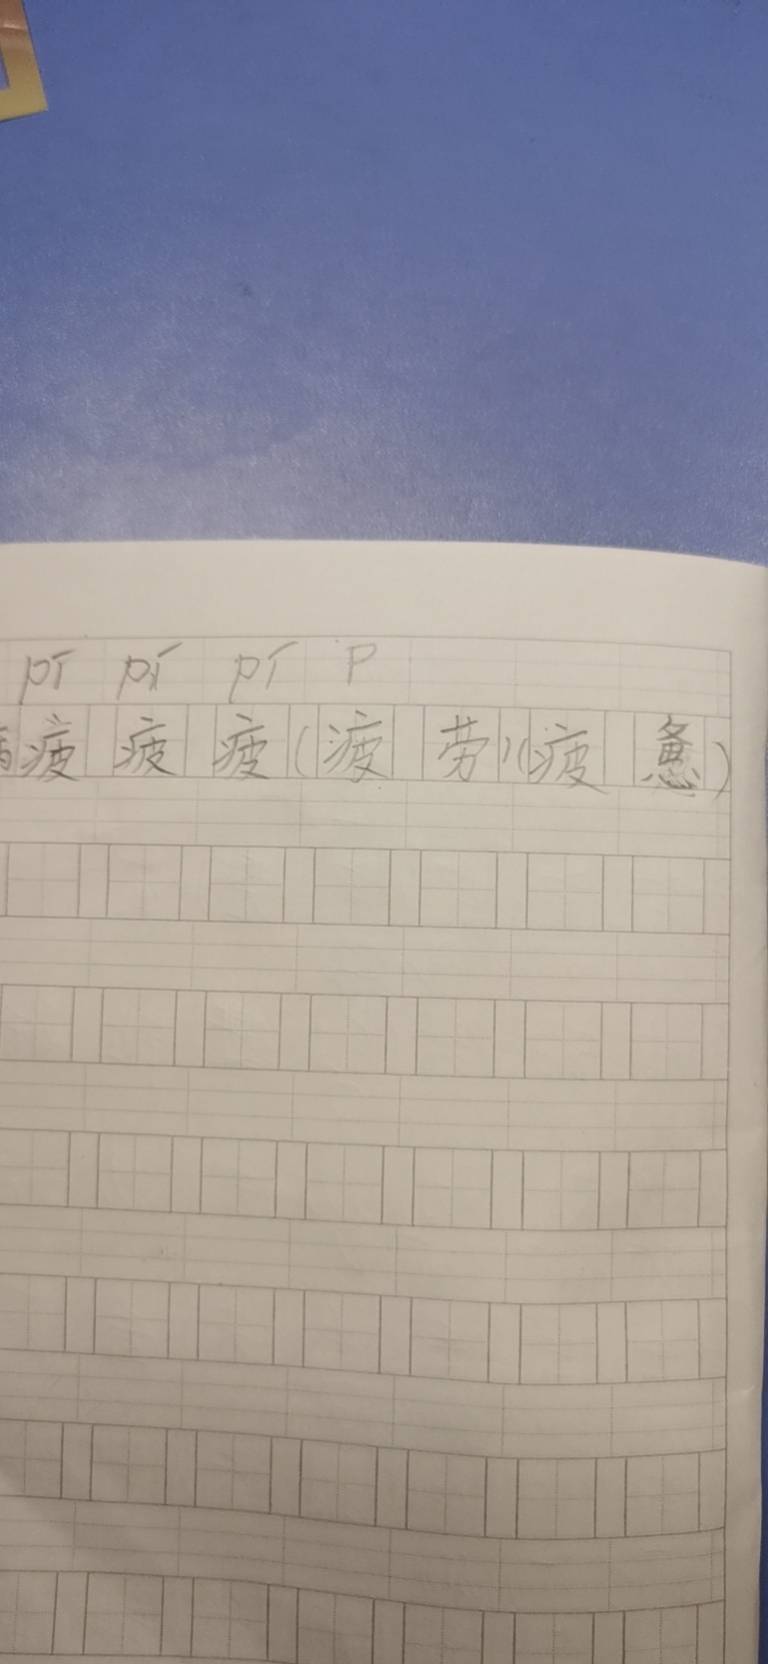 pí pí pí p
疲 疲 疲 (疲 劳) (疲 惫)